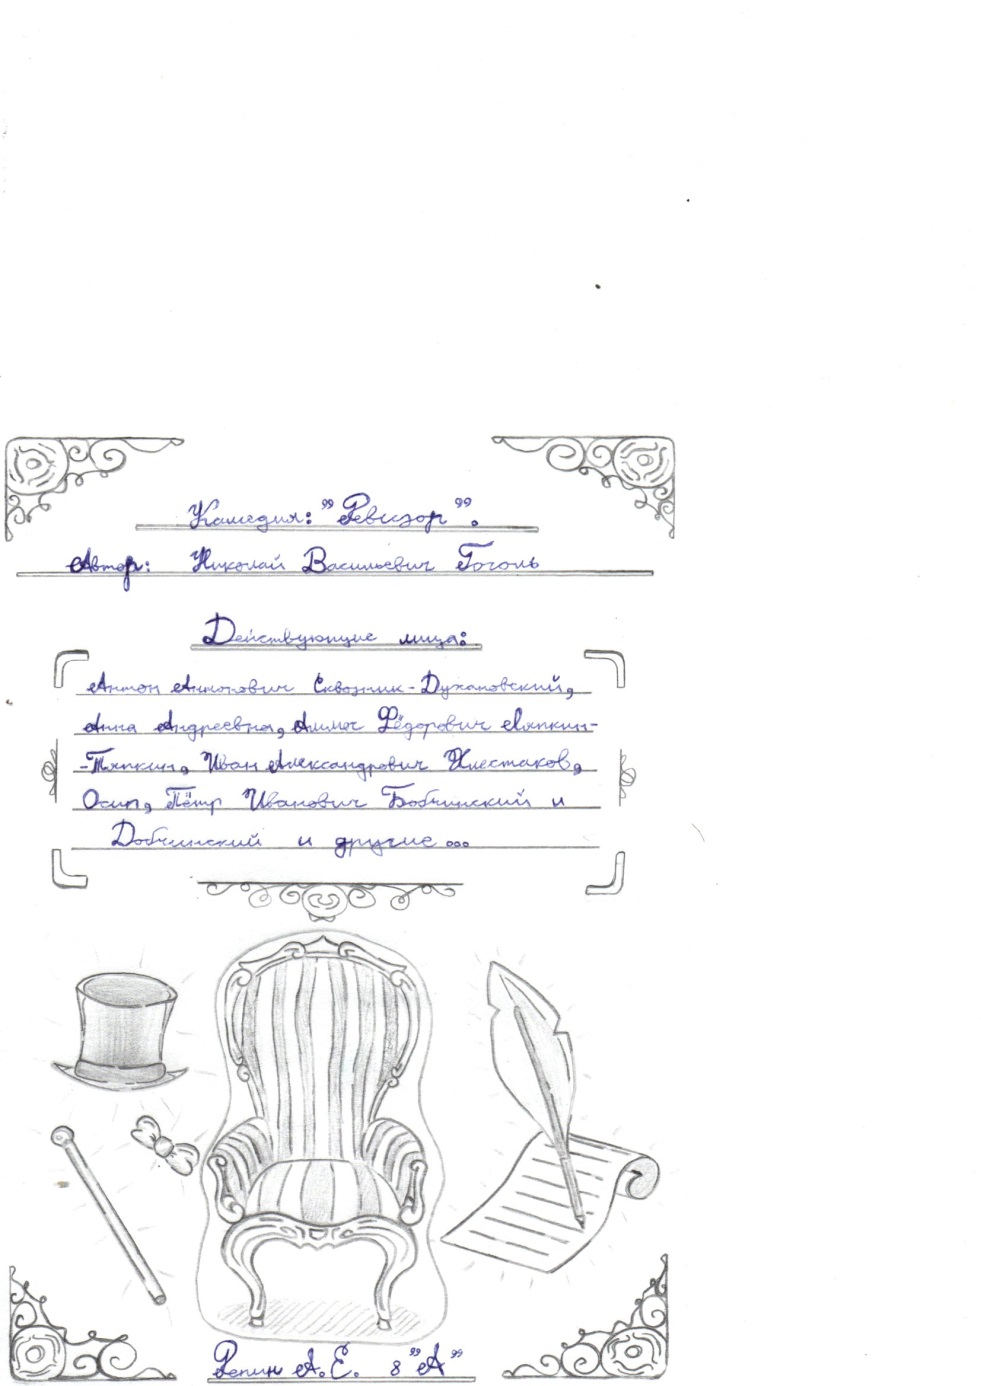 Камедия: "Ревизор".
Автор: Николай Васильевич Гоголь
Действующие лица:
Антон Антонович Сквозник-Духановский,
Анна Андреевна, Аммос Фёдорович Ляпкин-
-Тяпкин, Иван Александрович Хлестаков,
Осип, Пётр Иванович Бобчинский и
Добчинский и другие...
Репин А.Е. 8 "А"